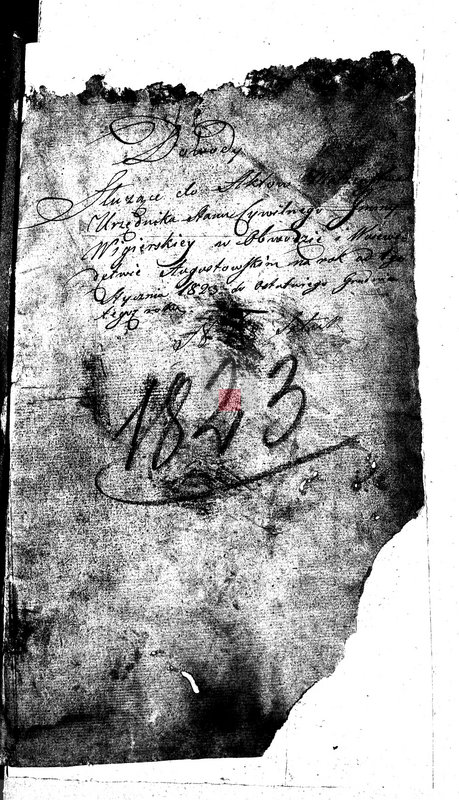 Dowody
Służące do Aktów
Urzędnika Stanu Cywilnego Gminy
w Obwodzie i Wojewó
dztwie Augustowskim na rok od 1go
Stycznia 1823 do Ostatniego Grudnia
tegoż roku
1823